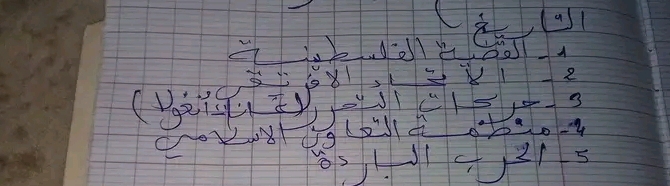 التاريخ
1- القضية الفلسطينية
2- الاتحاد الافريقي
3- حركات التحرر (غانا، أنغولا)
4- منظمة التعاون الاسلامي
5- الحرب الباردة